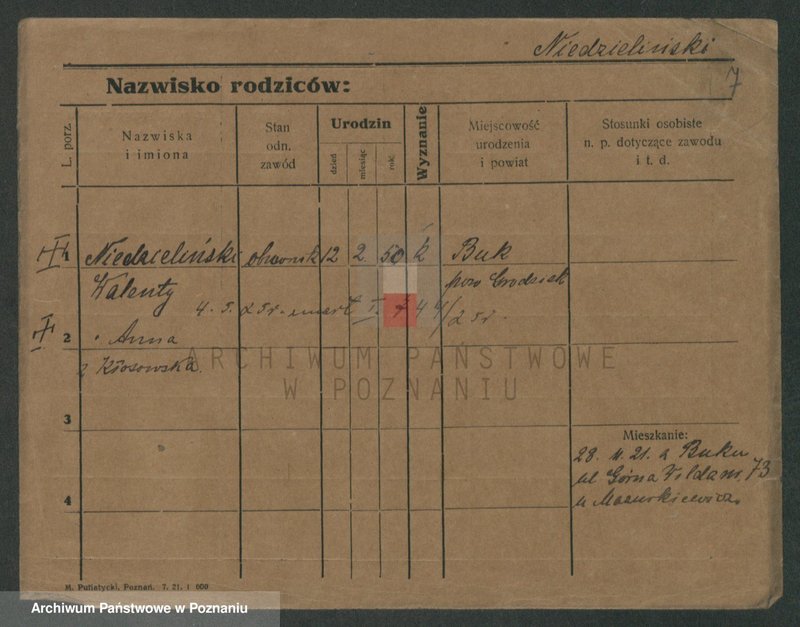 Niedzieliński
Nazwisko rodziców:
7
L. porz.
Nazwiska
i imiona
Stan
odn.
zawód
Urodzin
dzień
miesiąc
rok
Wyznanie
Miejscowość
urodzenia
i powiat
Stosunki osobiste
n. p. dotyczące zawodu
i t. d.
1 Niedzieliński 12 2. 50 k Buk
Walenty pow Grodzisk
4. 5. 25r. umarł I. 744/25r.
2 Anna
z Kłosowska.
ARCHIWUM PAŃSTWOWE
W POZNANIU
3
Mieszkanie:
28. 11. 21. z Buku
ul. Górna Wilda nr. 73
u Mazurkiewicz.
4
M. Putiatycki, Poznań. 7. 21. 1 000
Archiwum Państwowe w Poznaniu